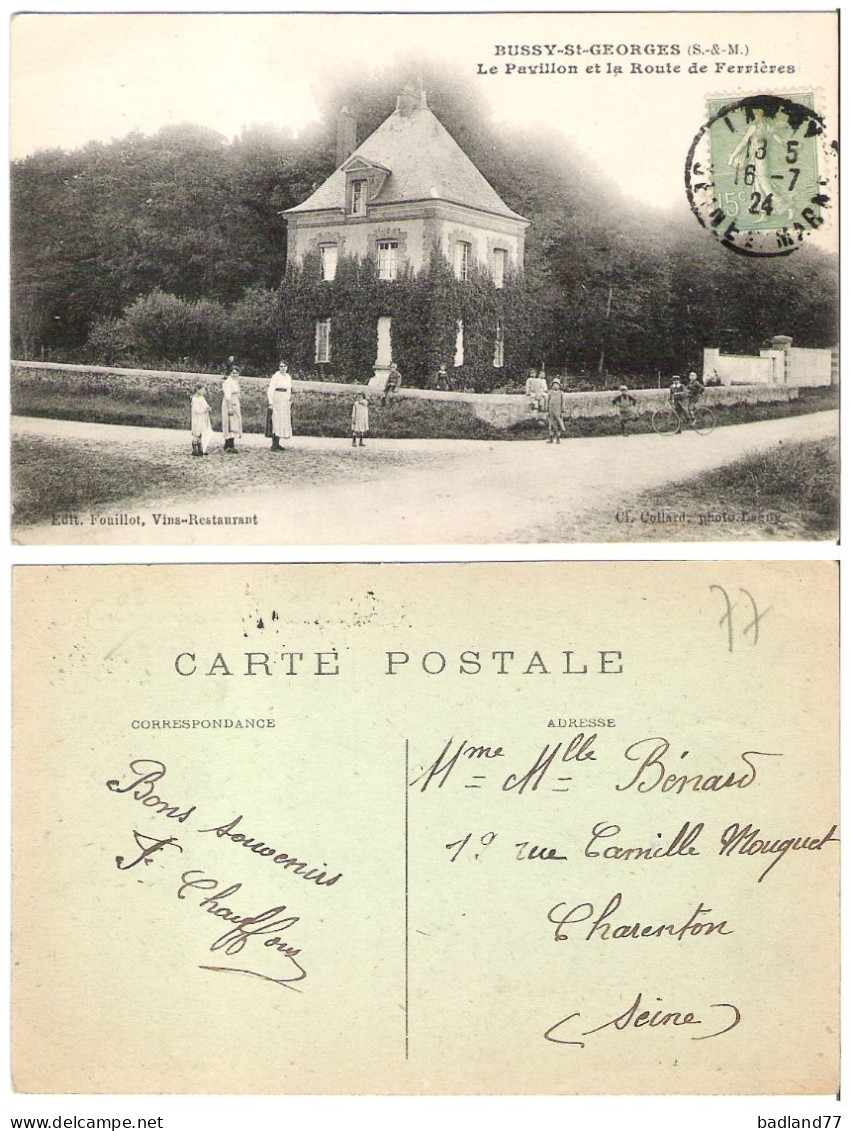 BUSSY-St-GEORGES (S.-&-M.)
Le Pavillon et la Route de Ferrières
15c
LAGNY
13 5
16 -7
24
SEINE ET MARNE
Edit. Fouillot, Vins-Restaurant
Cl. Collard, photo. Lagny
77
CARTE POSTALE
CORRESPONDANCE
ADRESSE
Bons souvenirs
F. Chauffour
Mme Mlle Bénard
19 rue Camille Mouquet
Charenton
(Seine)
badland77